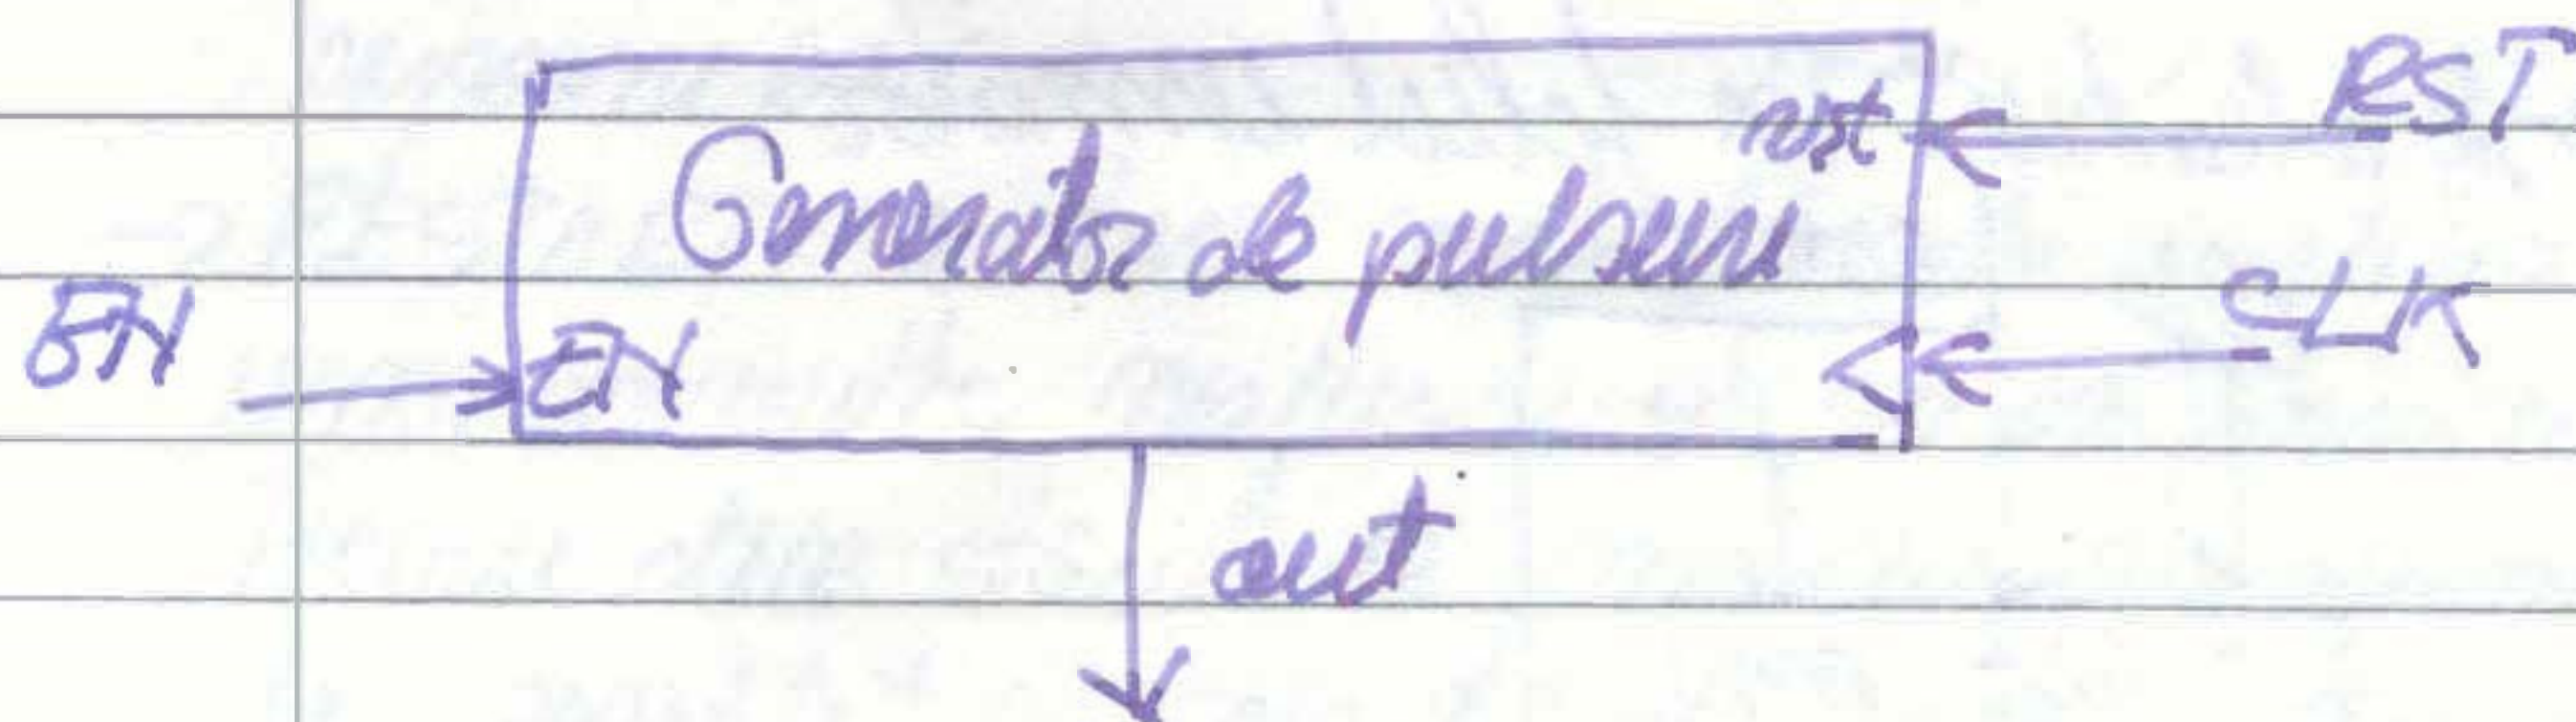 RST
rst
Generator de pulsuri
EN
CLK
EN
out